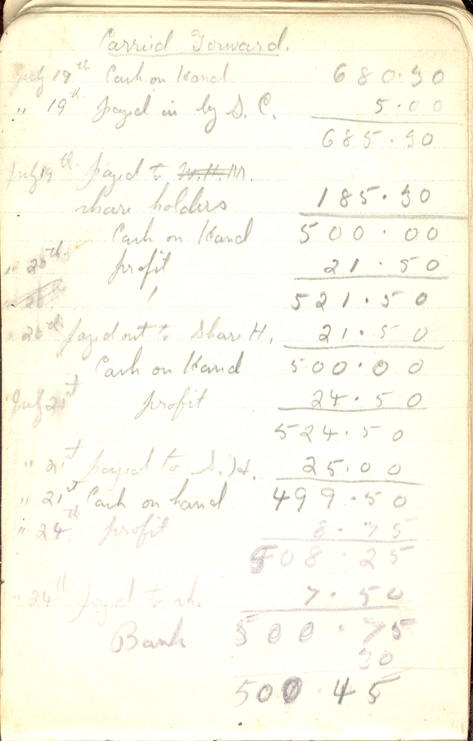 Carried Forward.
July 19th Cash on Hand 680.30
" 19th payed in by S.C. 5.00
685.30
July 19th payed to W.H.M.
share holders 185.30
Cash on Hand 500.00
" 20th profit 21.50
521.50
" 20th payed out to Share H. 21.50
Cash on Hand 500.00
July 21st profit 24.50
524.50
" 21st payed to S.H. 25.00
" 21st Cash on hand 499.50
" 24th profit 8.75
508.25
" 24th payed to sh. 7.50
Bank 500.75
30
500.45